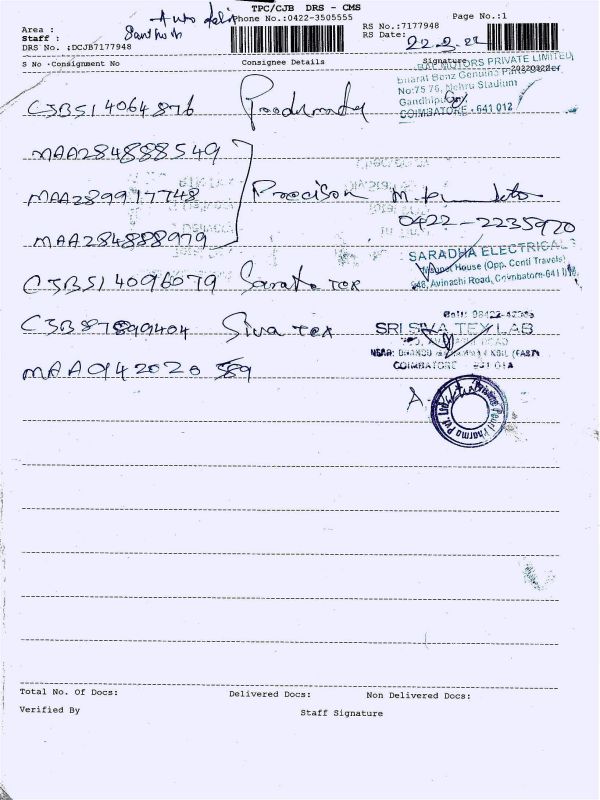 TPC/CJB DRS - CMS
Phone No.:0422-3505555
Page No.:1
Area :
Staff : Santhosh
RS No.:7177948
RS Date: 22.8.22
DRS No. :DCJB7177948
S No -Consignment No Consignee Details Signature
20220822
RAJ MOTORS PRIVATE LIMITED
Bharat Benz Genuine Parts Dealer
No:75 76, Nehru Stadium
Gandhipuram
COIMBATORE - 641 012
CJB514064876
MAA284888549
MAA289917748 Precision
0422-2235970
MAA284888979
SARADHA ELECTRICALS
House (Opp. Conti Travels)
948, Avinashi Road, Coimbatore-641
CJB514096079 tex
CJB87899404 Siva tex
SRI SIVA TEX LAB
COIMBATORE
MAA942020589
Pharma Pvt. Ltd.
Total No. Of Docs: Delivered Docs: Non Delivered Docs:
Verified By Staff Signature